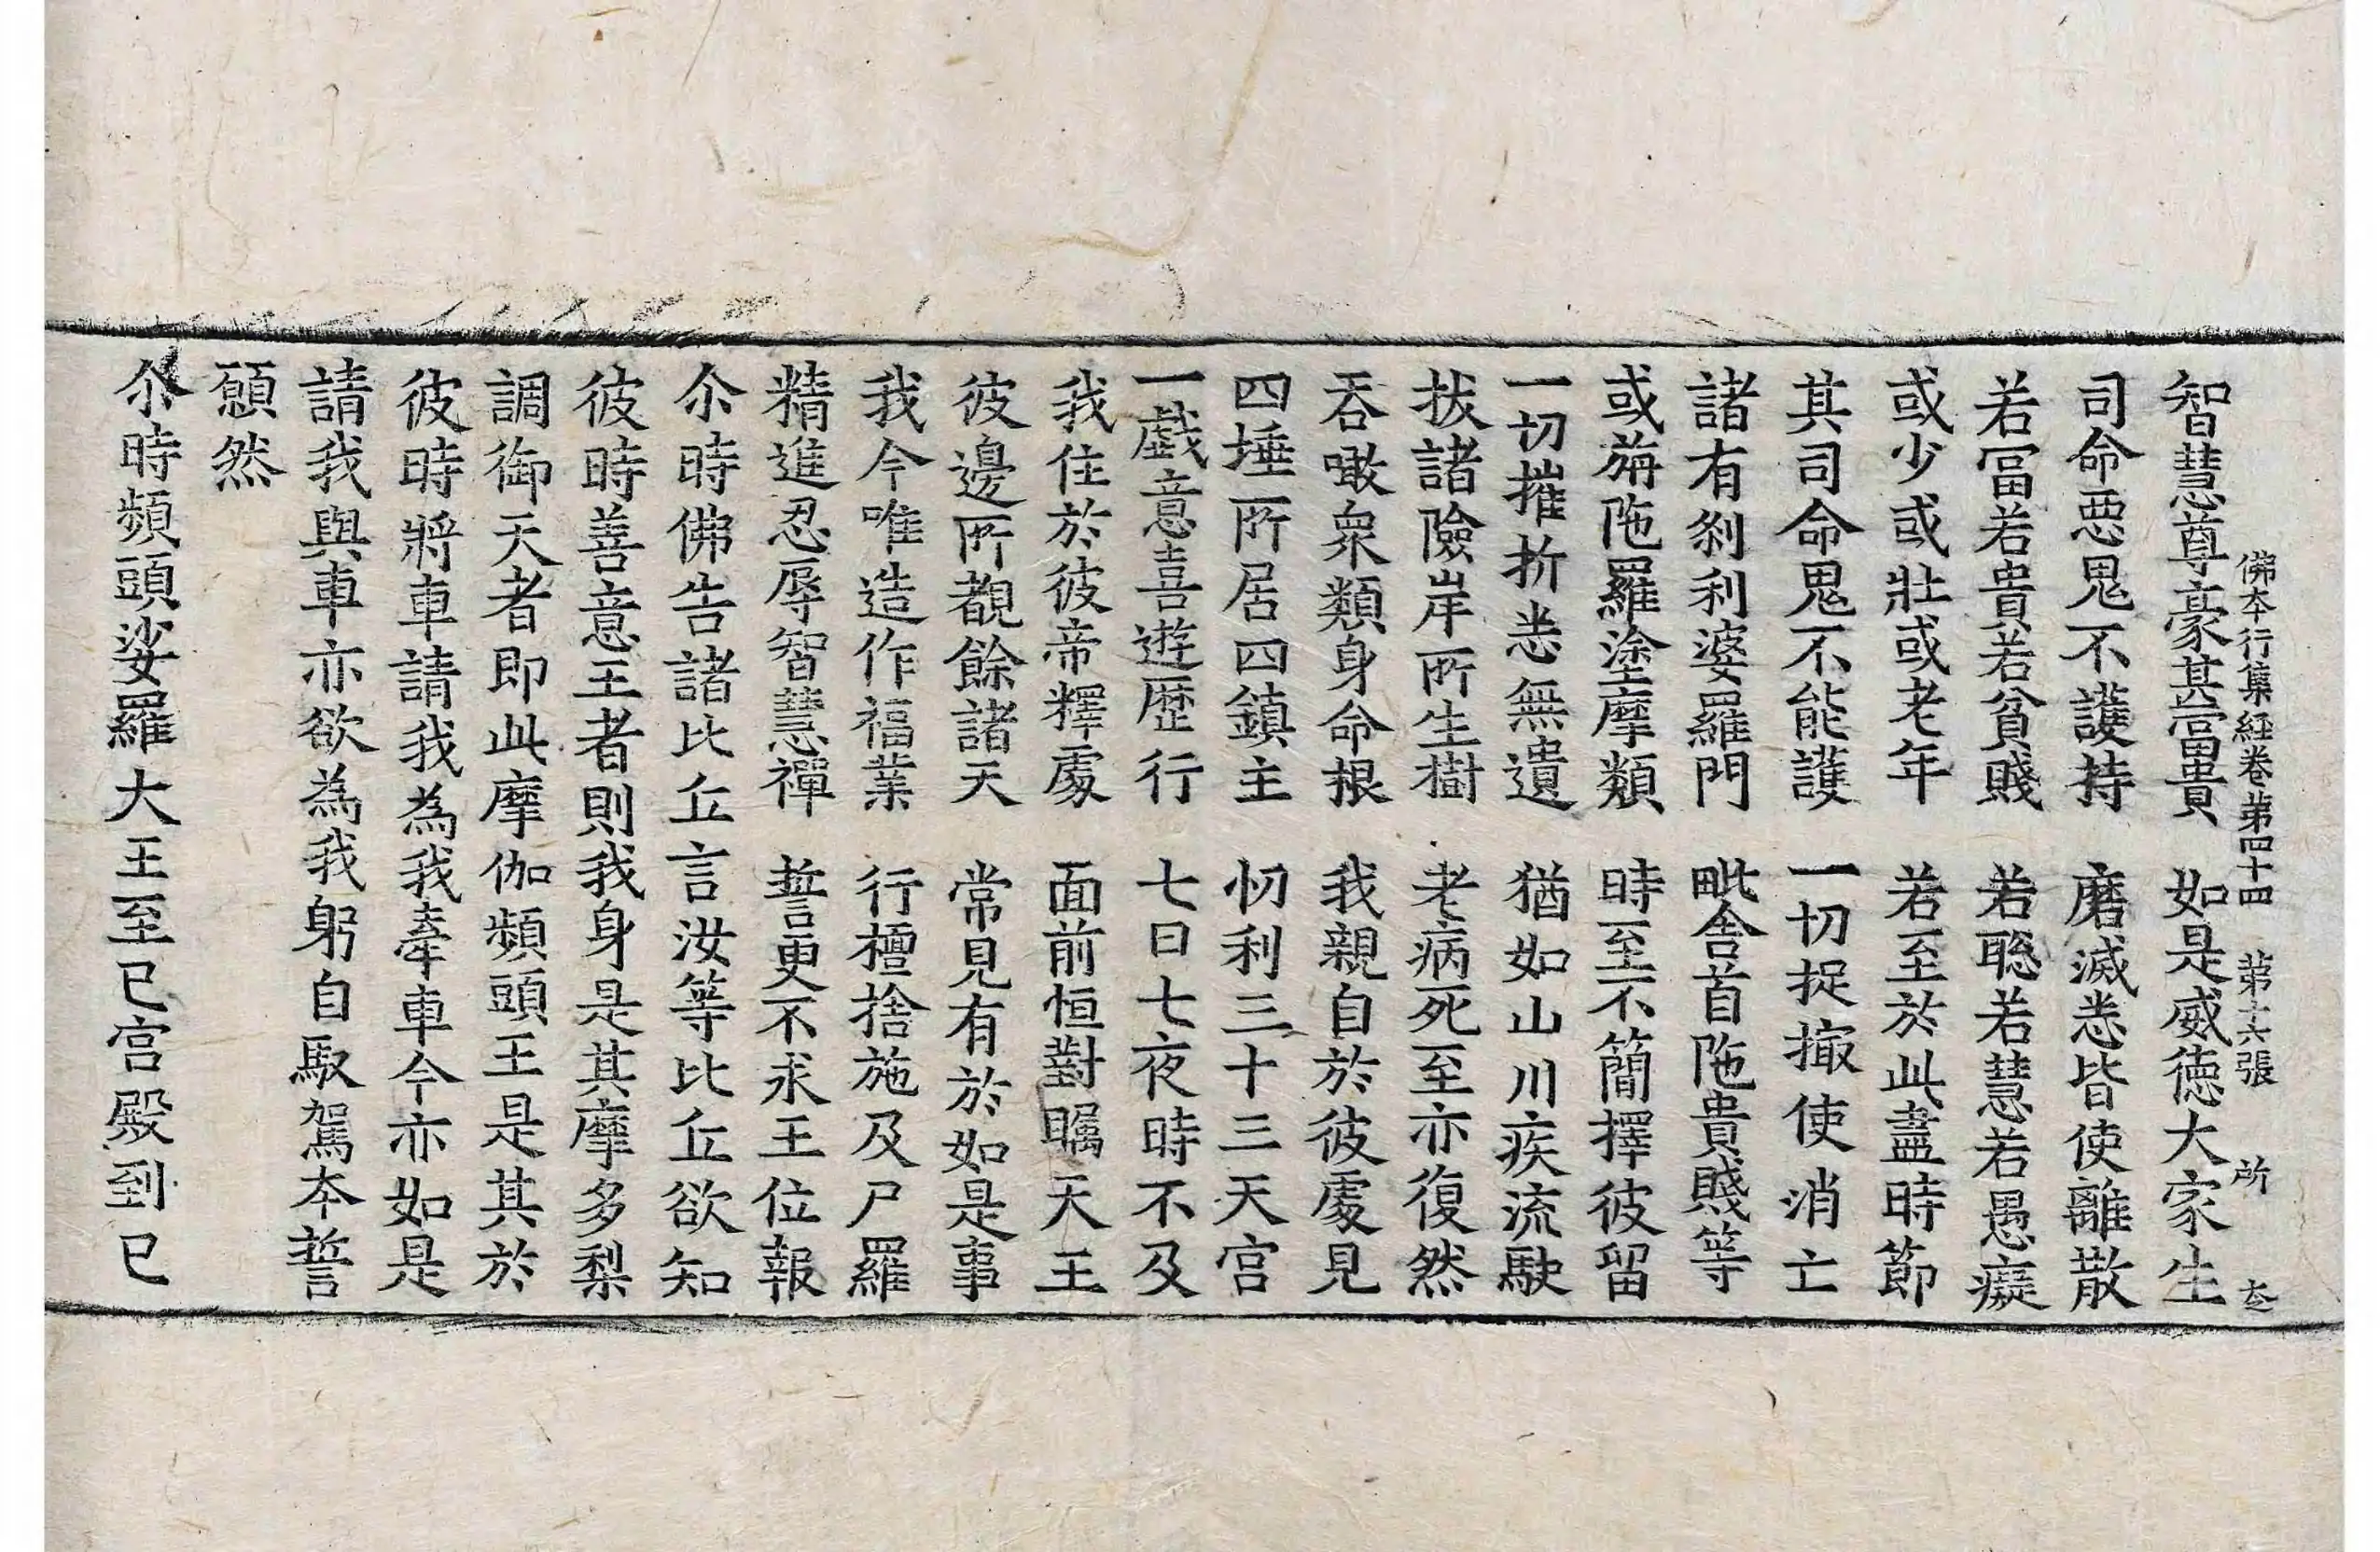 佛夲行集経卷苐四十四 苐十六張 所
智慧尊豪其富貴 如是威徳大家生
司命悪鬼不護持 磨滅悉皆使離散
若冨若貴若貧賤 若聡若慧若愚癡
或少或壯或老年 若至於此盡時節
其司命鬼不能護 一切捉撮使消亡
諸有刹利婆羅門 毗舍首陁貴賤等
或旃陁羅塗摩類 時至不簡擇彼留
一切摧折悉無遺 猶如山川疾流駛
拔諸險岸所生樹 老病死至亦復然
吞噉衆類身命根 我親自於彼處見
四埵所居四鎮主 忉利三十三天宫
一戲意喜遊歷行 七日七夜時不及
我住於彼帝釋處 面前恒對矚天王
彼邊所覩餘諸天 常見有於如是事
我今唯造作福業 行檀捨施及尸羅
精進忍辱智慧禪 誓更不求王位報
尒時佛告諸比丘言汝等比丘欲知
彼時善意王者則我身是其摩多梨
調御天者即此摩伽頻頭王是其於
彼時將車請我為我牽車今亦如是
請我與車亦欲為我躬自馭駕夲誓
願然
尒時頻頭娑羅大王至已宫殿到已